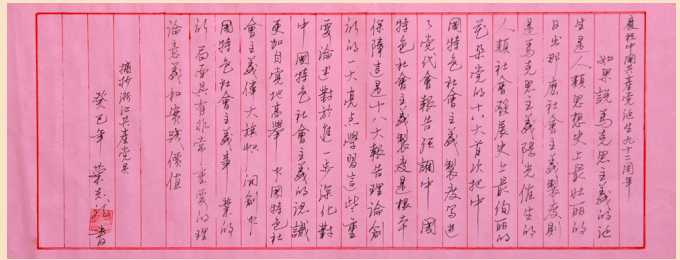 慶祝中國共產黨誕生九十二周年
如果說馬克思主義的誕
生是人類思想史上最壯麗的
日出那麼社會主義制度則
是馬克思主義陽光催生的
人類社會發展史上最絢麗的
花朵黨的十八大首次把中
國特色社會主義製度寫進
了黨代會報告強調中國
特色社會主義製度是根本
保障這是十八大報告理論創
新的一大亮點學習這些重
要論述對於進一步深化對
中國特色社會主義的認識
更加自覺地高舉中國特色社
會主義偉大旗幟開創中
國特色社會主義事業的
新局面具有非常重要的理
論意義和實踐價值
摘抄浙江共產黨員
癸巳年 葉 書